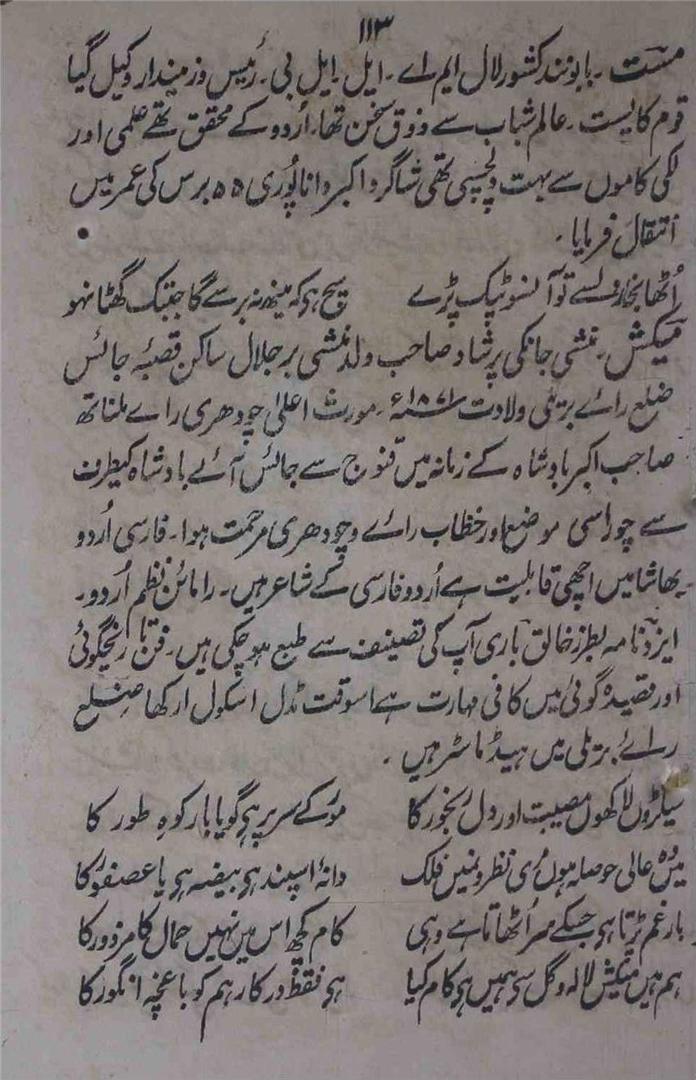 ۱۱۳
مست ۔ بابو نند کشور لال ایم اے ۔ ایل ۔ ایل بی ۔ رئیس و زمیندار وکیل گیا
قوم کایست ۔ عالم شباب سے ذوق سخن تھا۔ اُردو کے محقق تھے علمی اور
لکی کاموں سے بہت دلچسپی تھی شاگرد اکبر دانا پُوری ۵۵ برس کی عمر میں
انتقال فرمایا ۔
اُٹھا بخار دل سے تو آنسو ٹپک پڑے سچ ہی کہ مینھ نہ برسے گا جبتک گھٹا نہو
میکش ۔ منشی جانکی پرشاد صاحب ولد منشی برجلال ساکن قصبۂ جائس
ضلع رائے بریلی ولادت ۱۸۷۱ء ۔ مورث اعلیٰ چودھری راے ملناتھ
صاحب اکبر بادشاہ کے زمانہ میں قنوج سے جائس آئے بادشاہ کیطرف
سے چوراسی موضع اور خطاب رائے و چودھری مرحمت ہوا ۔ فارسی اُردو
بھاشا میں اچھی قابلیت ہے اُردو فارسی کے شاعر ہیں ۔ رامائن نظم اُردو ۔
ایزد نامہ بطرز خالق باری آپ کی تصنیف سے طبع ہو چکی ہیں ۔ فن تاریخگوئی
اور قصیدہ گوئی میں کافی مہارت ہے اسوقت مڈل اسکول ارکھا ضلع
رائے بریلی میں ہیڈ ماسٹر ہیں ۔
سیکڑوں لاکھوں مصیبت اور دل رنجور کا مور کے سر پر ہی گویا بار کوہِ طور کا
میں وہ عالی حوصلہ ہوں میری نظروں میں فلک دانۂ اسپند ہی بیضہ ہی یا عصفور کا
بار غم پڑتا ہی جسکے سر اُٹھاتا ہے وہی کام کچھ اس میں نہیں حمال کا مزدور کا
ہم ہیں میکش لالہ و گل سے ہمیں ہی کام کیا ہی فقط درکار ہم کو باغچہ انگور کا